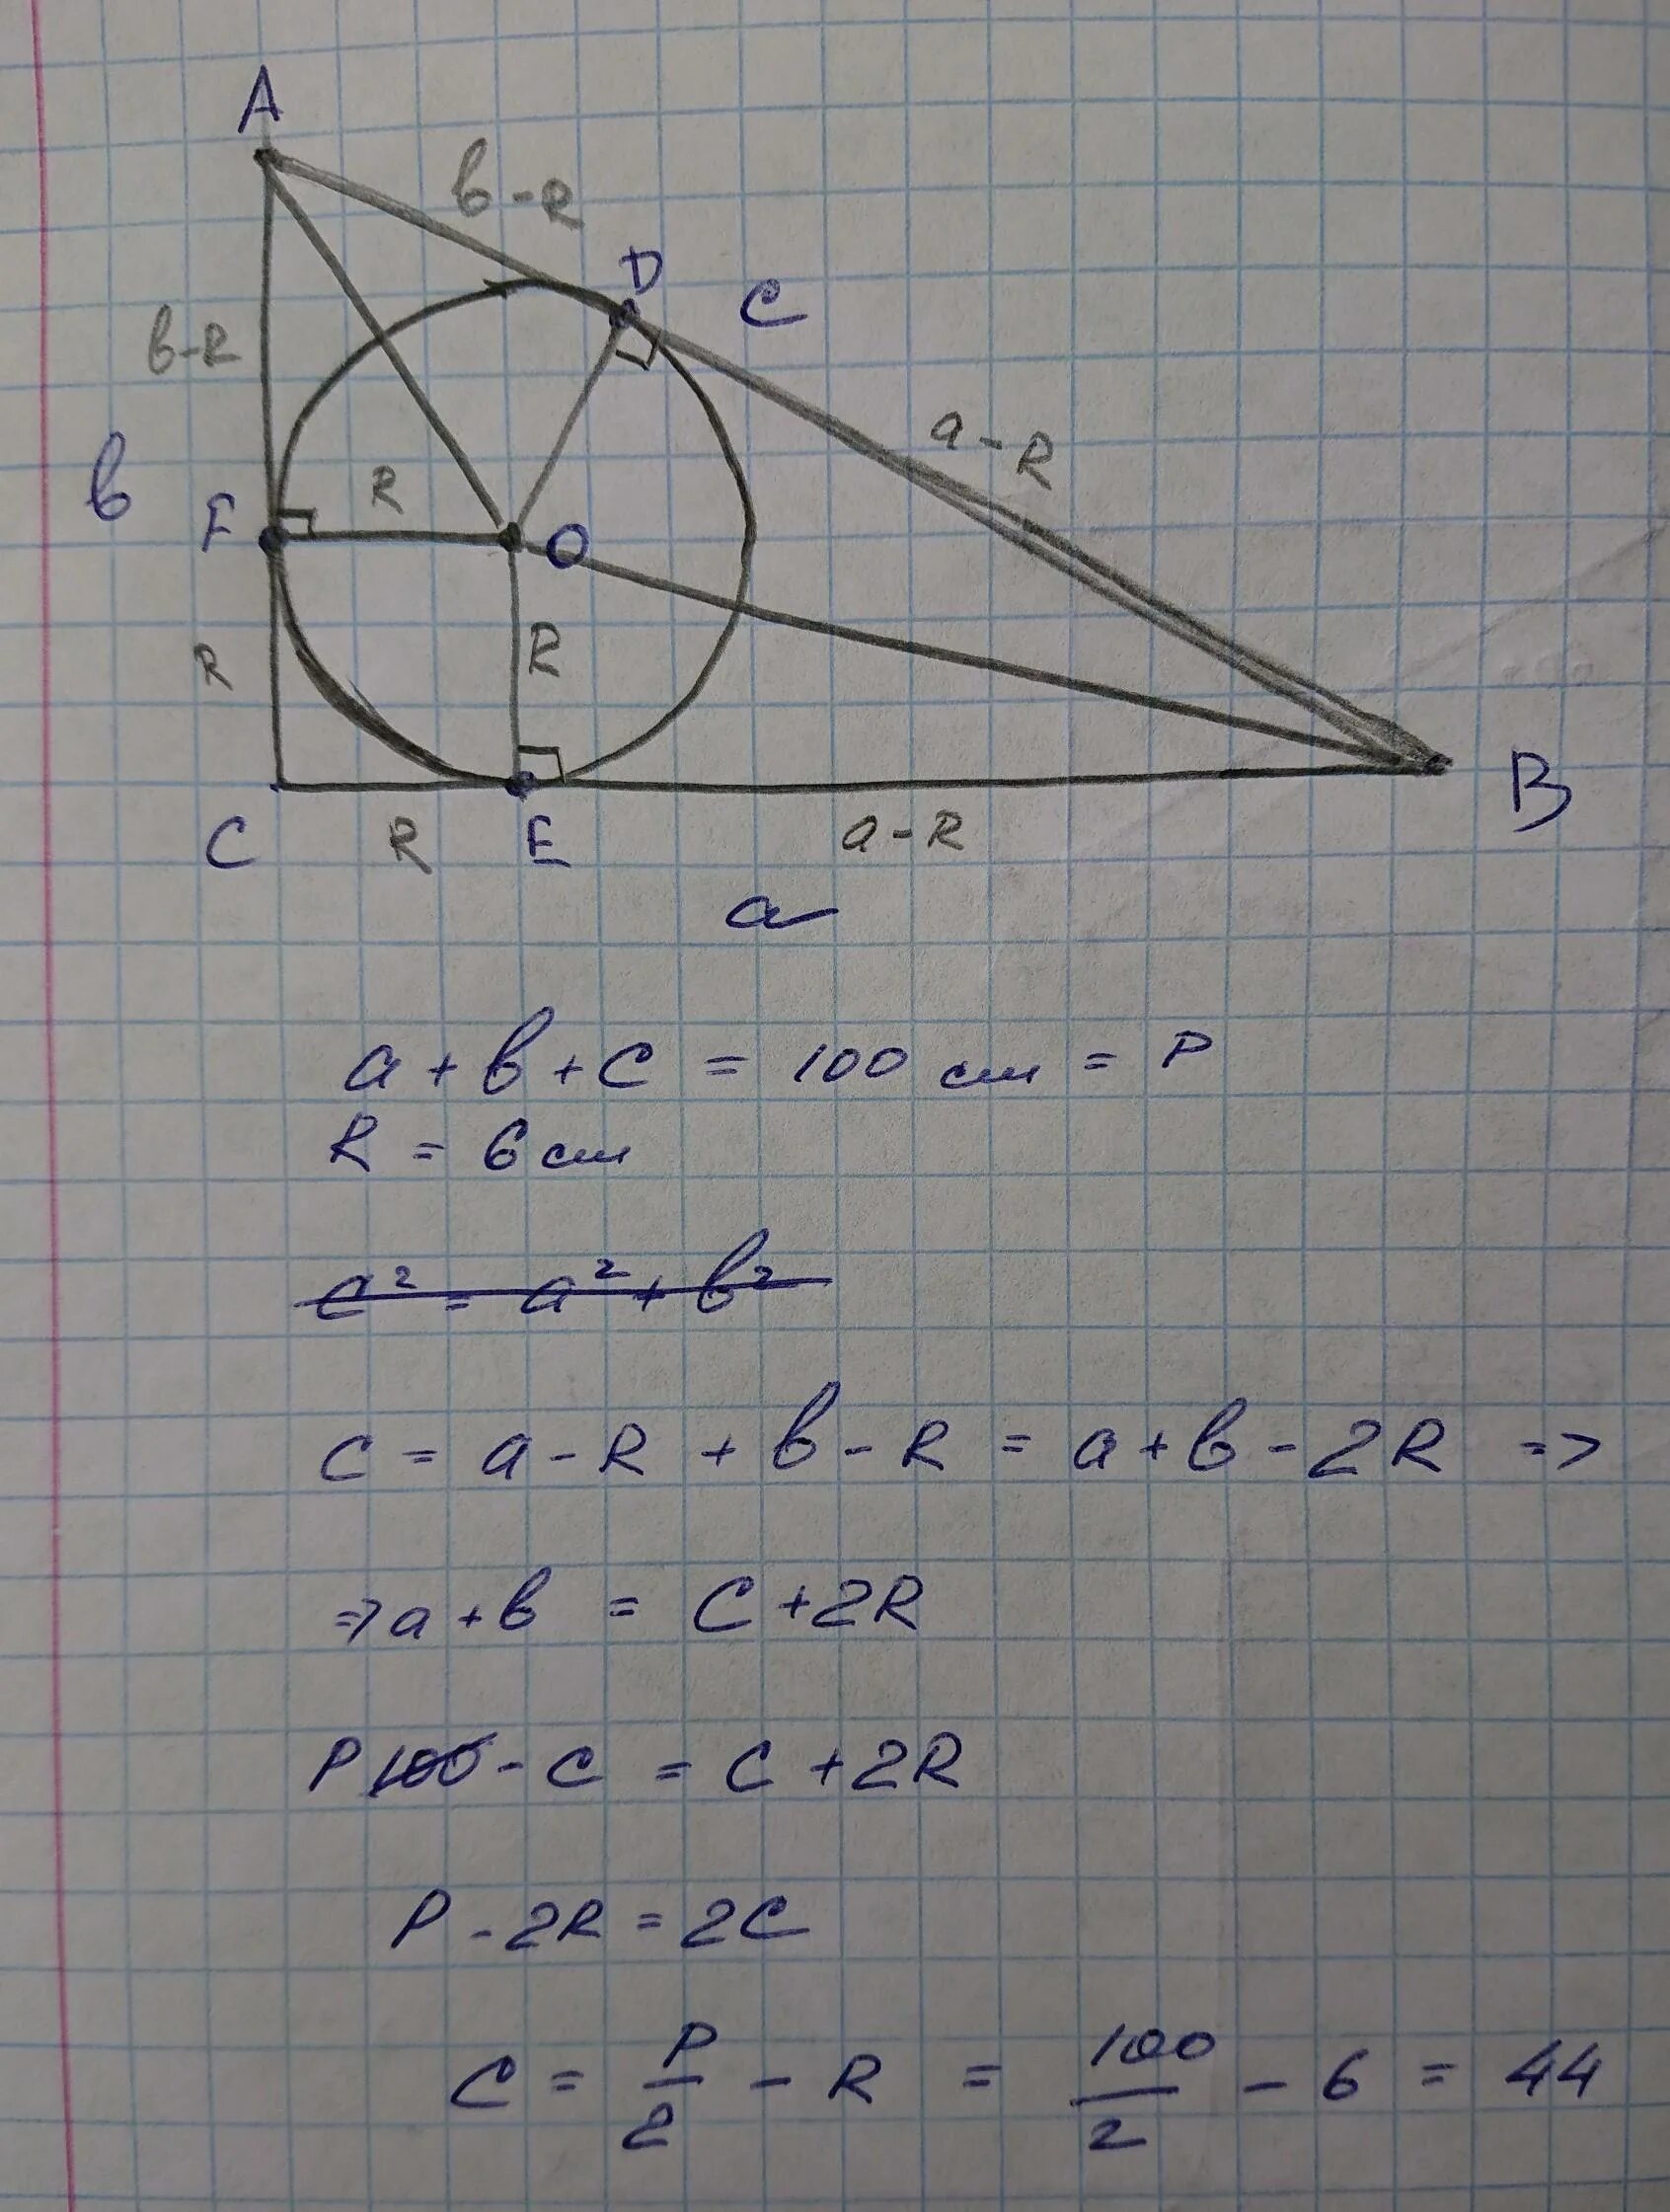 A
в-R
D
C
в-R
a-R
в
F
R
O
R
R
B
C
R
E
a-R
a
a + в + c = 100 см = P
R = 6 см
c² = a² + в²
c = a - R + в - R = a + в - 2R =>
=> a + в = c + 2R
P 100 - c = c + 2R
P - 2R = 2c
c = P/2 - R = 100/2 - 6 = 44